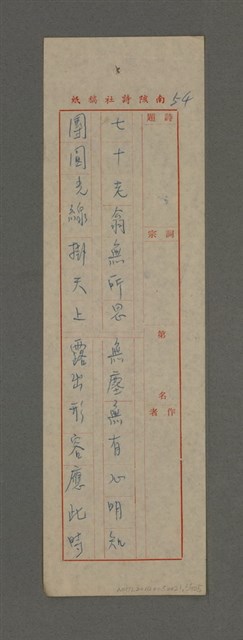 南陔詩社稿紙
54
詩題
詞宗
第 名
作者
七十老翁無所思 無塵無有心明知
團圓光線掛天上 露出形容應此時